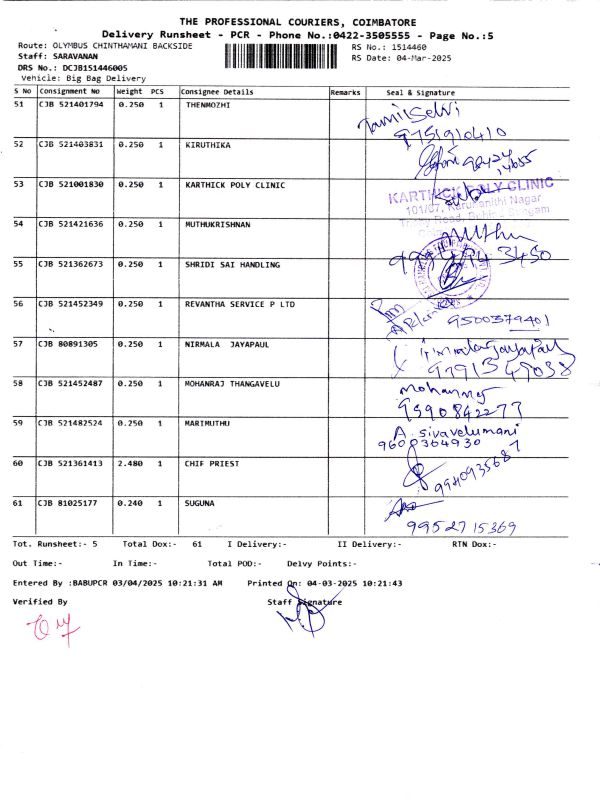 THE PROFESSIONAL COURIERS, COIMBATORE
Delivery Runsheet - PCR - Phone No.:0422-3505555 - Page No.:5
Route: OLYMBUS CHINTHAMANI BACKSIDE
RS No.: 1514460
Staff: SARAVANAN
RS Date: 04-Mar-2025
DRS No.: DCJB151446005
vehicle: Big Bag Delivery
S No Consignment No Weight PCS Consignee Details Remarks Seal & Signature
51 CJB 521401794 0.250 1 THENMOZHI Tamil Selvi
9751910410
52 CJB 521403831 0.250 1 KIRUTHIKA
53 CJB 521001830 0.250 1 KARTHICK POLY CLINIC KARTHICK POLY CLINIC
54 CJB 521421636 0.250 1 MUTHUKRISHNAN Muthu
55 CJB 521362673 0.250 1 SHRIDI SAI HANDLING
56 CJB 521452349 0.250 1 REVANTHA SERVICE P LTD
9500379401
57 CJB 80891305 0.250 1 NIRMALA JAYAPAUL Nirmala Jayapaul
9791349038
58 CJB 521452487 0.250 1 MOHANRAJ THANGAVELU
9590842277
59 CJB 521482524 0.250 1 MARIMUTHU A. sivavelumani
9600364930
60 CJB 521361413 2.480 1 CHIF PRIEST
9940935687
61 CJB 81025177 0.240 1 SUGUNA
9952715369
Tot. Runsheet:- 5 Total Dox:- 61 I Delivery:- II Delivery:- RTN Dox:-
Out Time:- In Time:- Total POD:- Delvy Points:-
Entered By :BABUPCR 03/04/2025 10:21:31 AM Printed On: 04-03-2025 10:21:43
Verified By Staff Signature